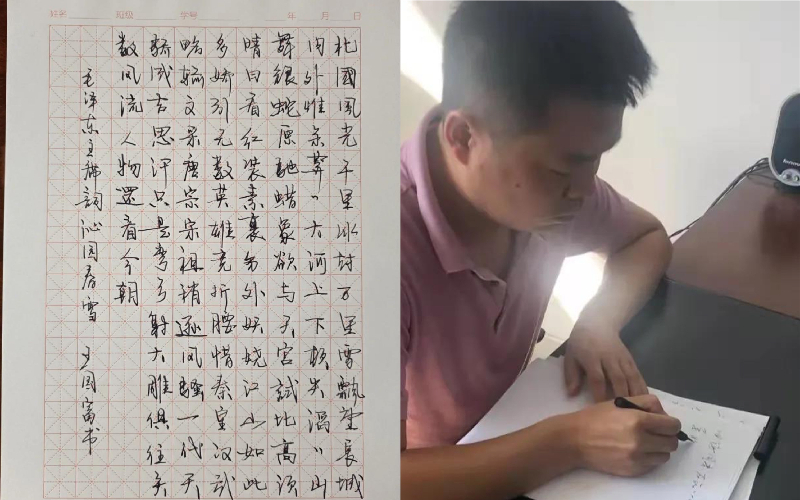 姓名 班级 学号 年 月 日
北國風光千里冰封万里雪飄望長城
内外惟余莽〃大河上下頓失滔〃山
舞銀蛇原馳蜡象欲与天宫試比高须
晴日看红装素裹分外妖娆江山如此
多娇引无数英雄竞折腰惜秦皇汉武
略输文采唐宗宋祖稍逊风骚一代天
骄成吉思汗只是弯弓射大雕俱往矣
数风流人物還看今朝
毛泽东主席詞沁园春雪 国富书
lenovo